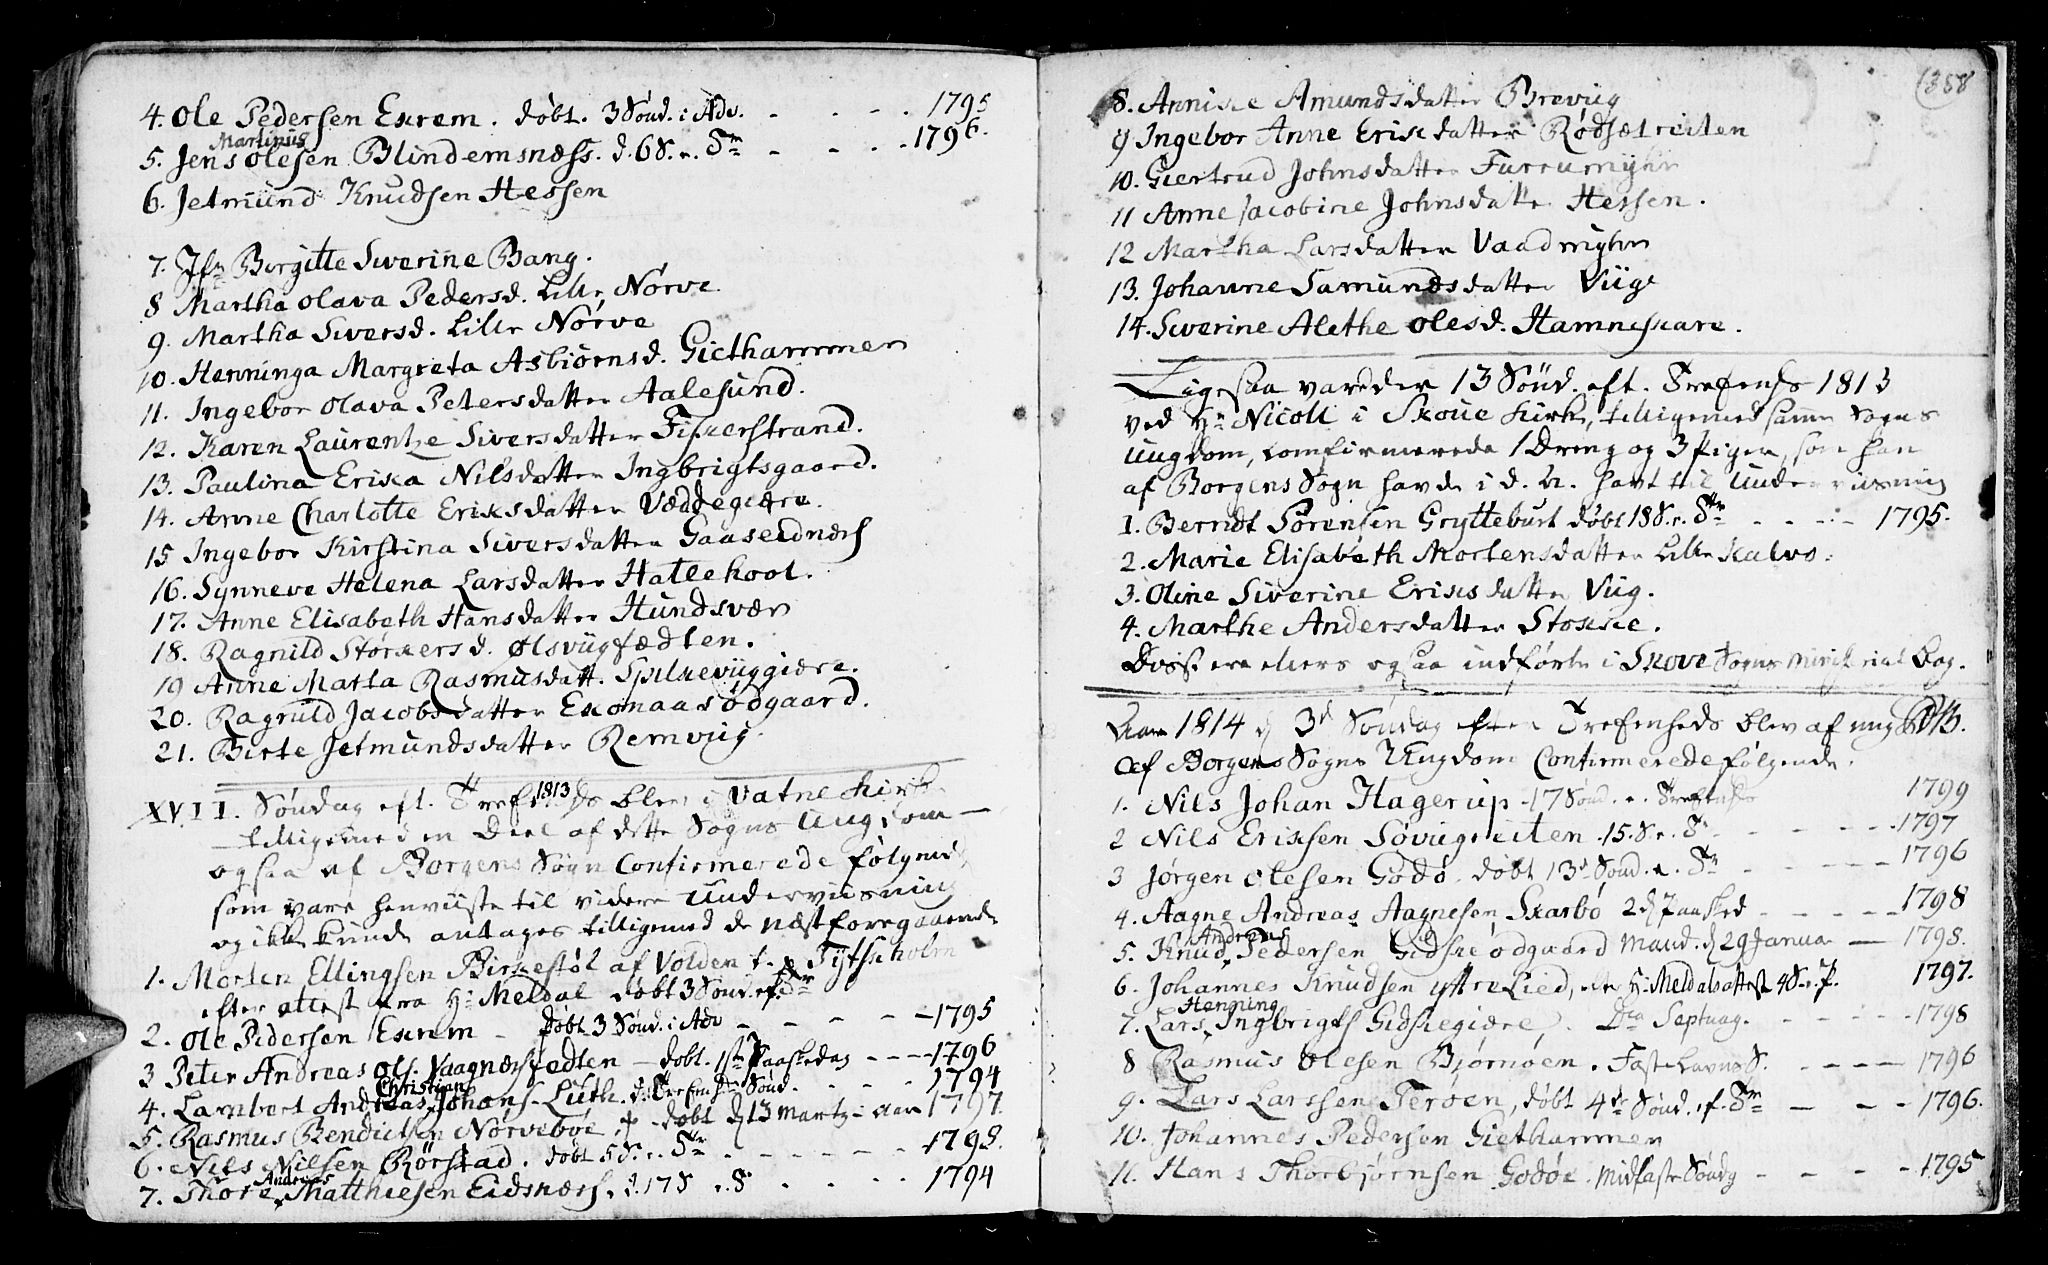 4. Ole Pedersen Exrem. døbt. 3 Sønd. i Adv. - - - 1795
Martinus
5. Jens Olesen Blindemsnæss. d. 6 S. e. Tr - - - 1796.
6. Jetmund Knudsen Hessen
7. Jfr Birgitte Siverine Bang.
8 Martha Olava Pedersd. Lille Nørve
9. Martha Siversd. Lille Nørve
10. Henninga Margreta Asbiørnsd. Giethammer
11. Ingebor Olava Petersdatter Aalesund.
12. Karen Laurentze Siversdatter Fiskerstrand.
13. Paulina Erica Nilsdatter Ingbrigtsgaard.
14. Anne Charlotte Ericsdatter Væddegiære.
15 Ingebor Kirstina Siversdatter Gaaseidnæss
16. Synneve Helena Larsdatter Hatlehool.
17. Anne Elisabeth Hansdatter Hundsvær
18. Ragnild Størkersd. Ølsviigfædten.
19 Anne Marta Rasmusdatt. Spilkeviiggiære.
20. Ragnild Jacobsdatter Exonaasødgaard.
21. Birte Jetmundsdatter Remviig.
XVII. Søndag eft. Trefh 1813 ds blev i Vatne Kirke
- tilligemed en Deel af dette Sogns Ungdom -
ogsaa af Borgens Sogn Confirmerede følgende,
som vare henviiste til videre Underviisning
og ikke kunde antages tilligemed de næstforegaaende
1. Morten Ellingsen Birkestøl af Volden t. p Tytsholm
efter attest fra Hr Meldal døbt 3 Sønd. ef. Tr
2. Ole Pedersen Exrem - døbt 3 Sønd. i Adv - - - 1795
3 Peter Andreas Ols. Vaagnæsfedten - døbt. 1ste Paaskedag - - - 1796
Christian
4. Lambert Andreas Johans. Lüth. d. Trefh Sønd. - - - 1794
5. Rasmus Bendictsen Nørvebøe, døbt d 13 Martz - aar 1797.
6. Nils Nilsen Rørstad. døbt 5 S. e. Tr - - - 1798.
Andreas
7. Thore Matthiesen Eidsnæss. d. 17 S e. Tr - - - 1794
1358
8. Annike Amundsdatter Breviig
9 Ingebor Anne Ericdatter Rødsætreiten
10. Giertrud Johnsdatter Furrumyhr
11 Anne Jacobine Johnsdatter Hessen.
12 Martha Larsdatter Vaadmyhr
13. Johanne Samundsdatter Viige
14. Siverine Alethe Olesd. Hamneskare.
Ligesaa var der 13 Sønd. eft. Trefh 1813
ved Hr Nicoll i Skoue Kirke, tilligemed samme Sogns
Ungdom, Comfirmerede 1 Dreng og 3 Piger, som han
af Borgens Sogn havde i d. A. havt til Underviisning
1. Berndt Sørensen Gryttebust døbt 18 S. e. Tr - - - 1795.
2. Marie Elisabeth Mortensdatter Lille Kalvø.
3. Oline Siverine Ericsdatter Viig.
4. Marthe Andersdatter Stokke.
Disse ere ellers ogsaa indførte i Skove Sogns Ministerial Bog.
Aar 1814 d 3d Søndag efter Trefh blev af mig
af Borgens Sogns Ungdom Confirmerede følgende.
1. Nils Johan Hagerup - 17 Sønd. e. Trefh 1799
2 Nils Ericsen Søviigreiten. 15. S. e. Tr - - - 1797
3 Jørgen Olesen Godø. døbt 13d Sønd. e. Tr - - - 1796
4. Aagne Andreas Aagnesen Skarbø 2 d Paasked - - - 1798
Andreas
5. Knud Pedersen Gidskeødgaard Maud. d 29 Janua - 1798.
6. Johannes Knudsen Yttrelied, Hr Meldals attest 4 S. e. P. 1797.
Henning
7. Lars Ingbrigts Gidskegiære. Dca Septuag. - - - 1798
8 Rasmus Olesen Bjørnøen. Fastelavns S. - - - 1796
9. Lars Larssen Terøen, døbt 4de Sønd. ef. Tr - - - 1796.
10. Johannes Pedersen Giethammer
11. Hans Thorbjørnsen Godøe. Midfaste Søndg - - - 1795